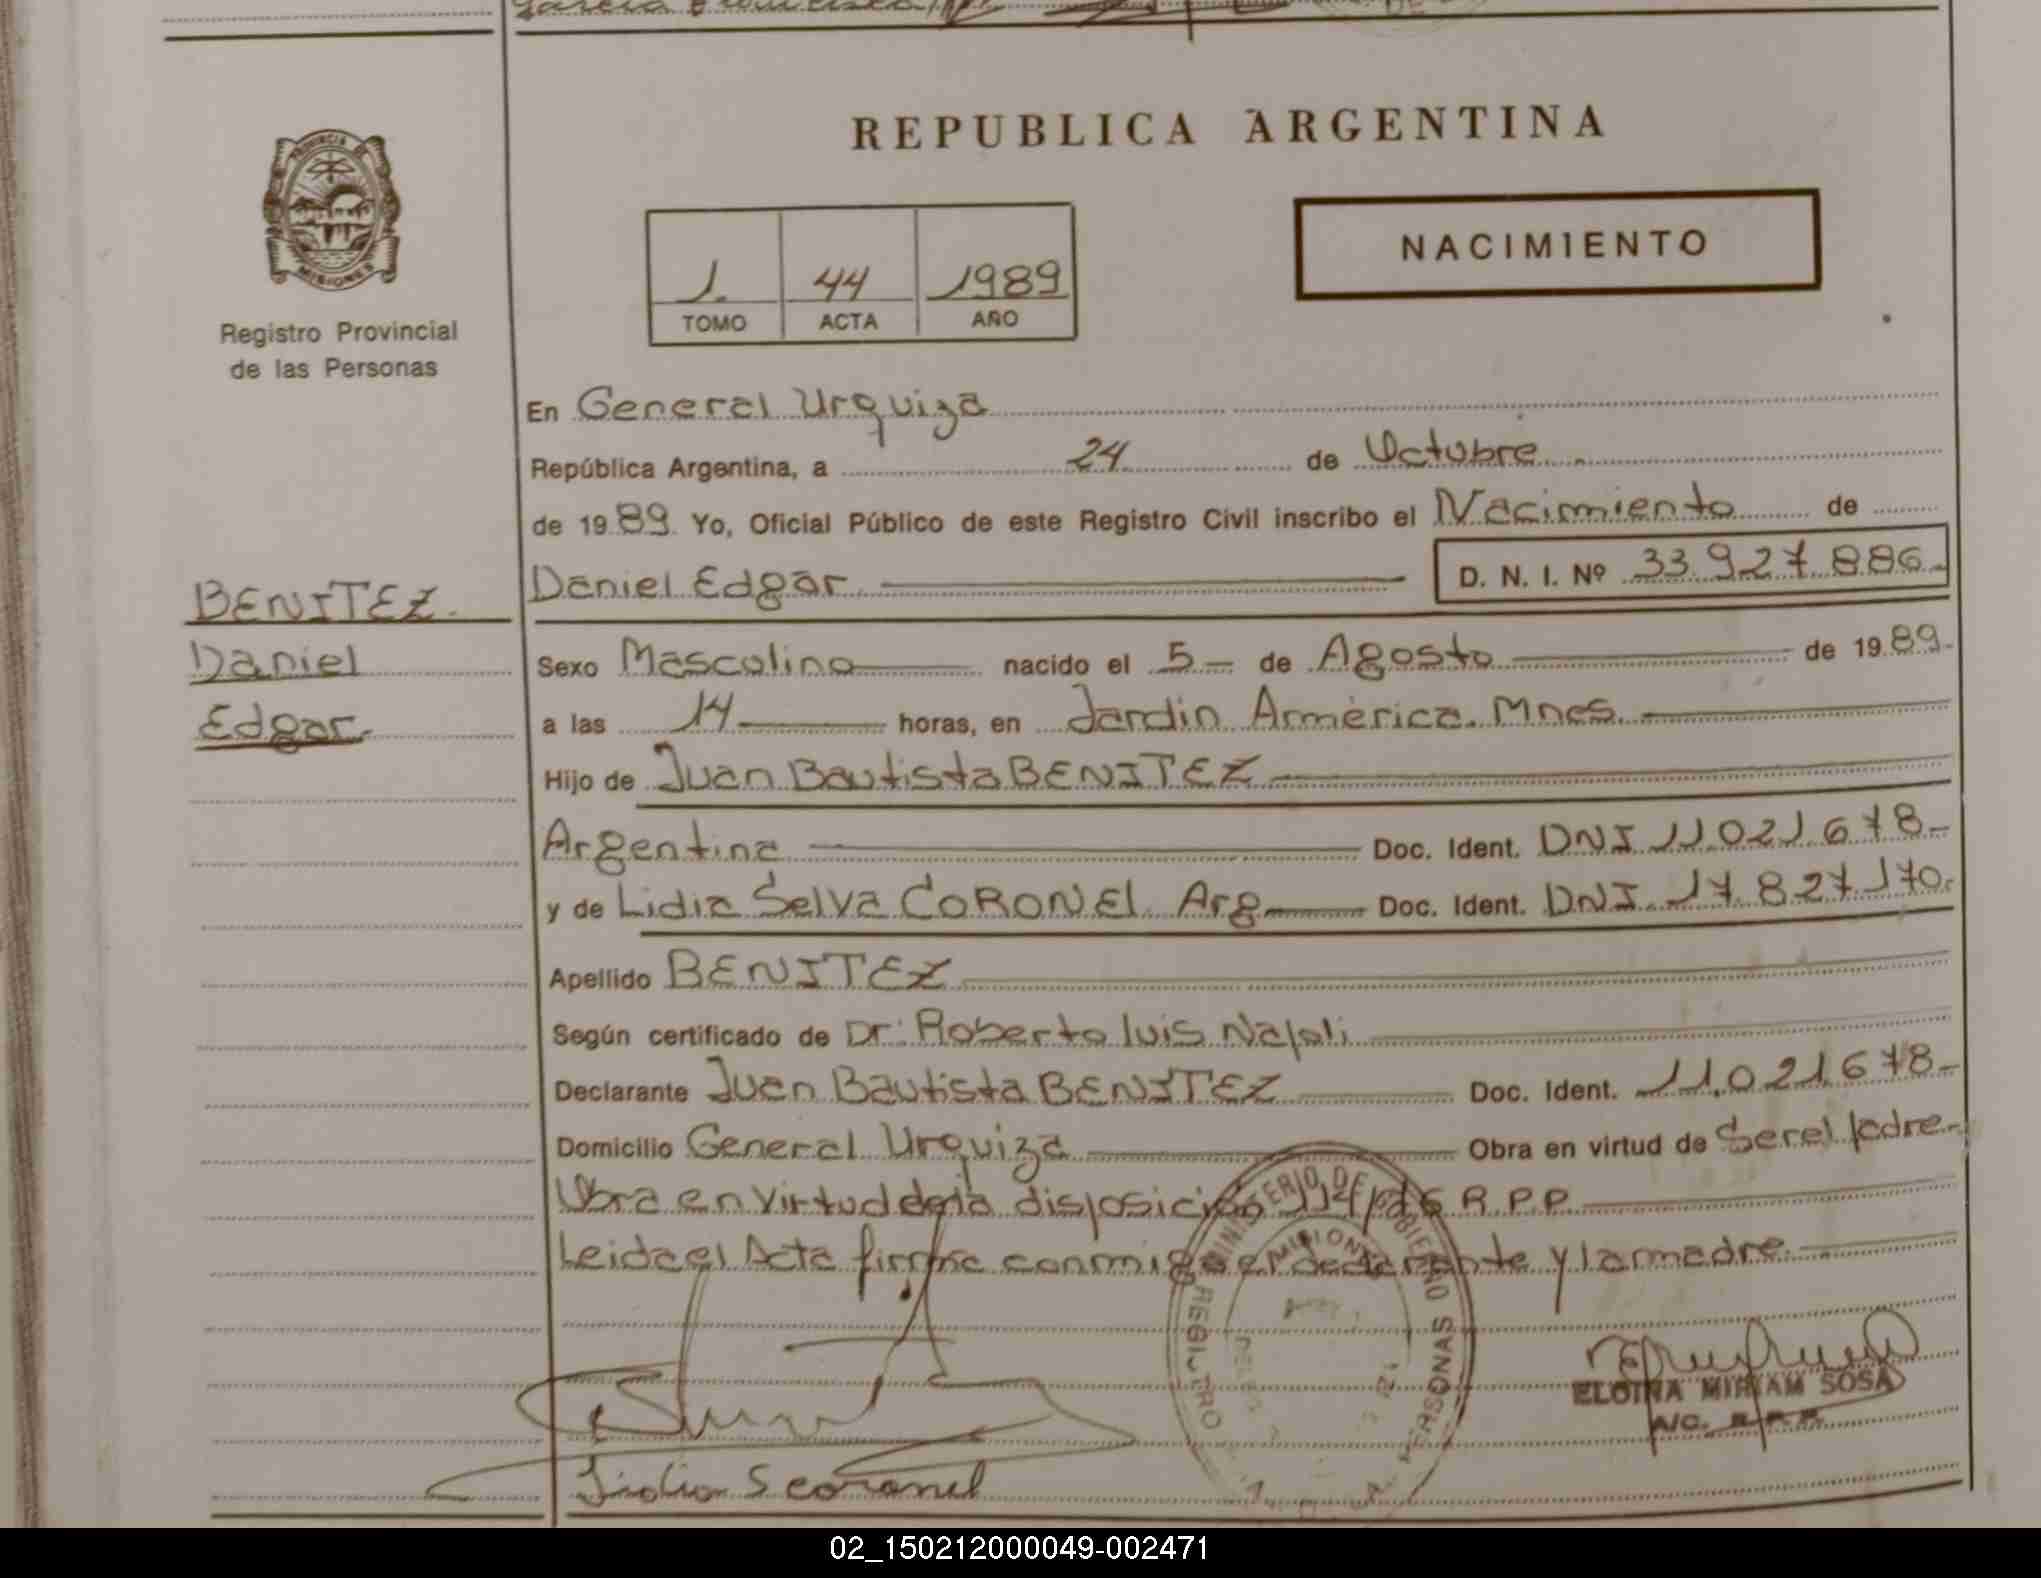 REPUBLICA ARGENTINA
PROVINCIA DE
MISIONES
Registro Provincial
de las Personas
1. 44 1989
TOMO ACTA AÑO
NACIMIENTO
En General Urquiza
República Argentina, a 24 de Octubre
de 1989. Yo, Oficial Público de este Registro Civil inscribo el Nacimiento de
Daniel Edgar D. N. I. Nº 33.927.886-
BENITEZ.
Daniel
Edgar.
Sexo Masculino nacido el 5 de Agosto de 1989-
a las 14 horas, en Jardin América. Mnes.
Hijo de Juan Bautista BENITEZ
Argentina Doc. Ident. DNI 11.021.678-
y de Lidia Selva CORONEL Arg Doc. Ident. DNI 17.827.170.
Apellido BENITEZ
Según certificado de Dr. Roberto luis Napoli
Declarante Juan Bautista BENITEZ Doc. Ident. 11.021.678-
Domicilio General Urquiza Obra en virtud de Ser el padre-
Obra en virtud de la disposición R.P.P.
Leida el Acta firma conmigo el declarante y la madre.
MINISTERIO DE GOBIERNO
MISIONES
REGISTRO PERSONAS
ELOINA MIRIAM SOSA
A/C. R.P.P.
Lidia S coronel
02_150212000049-002471